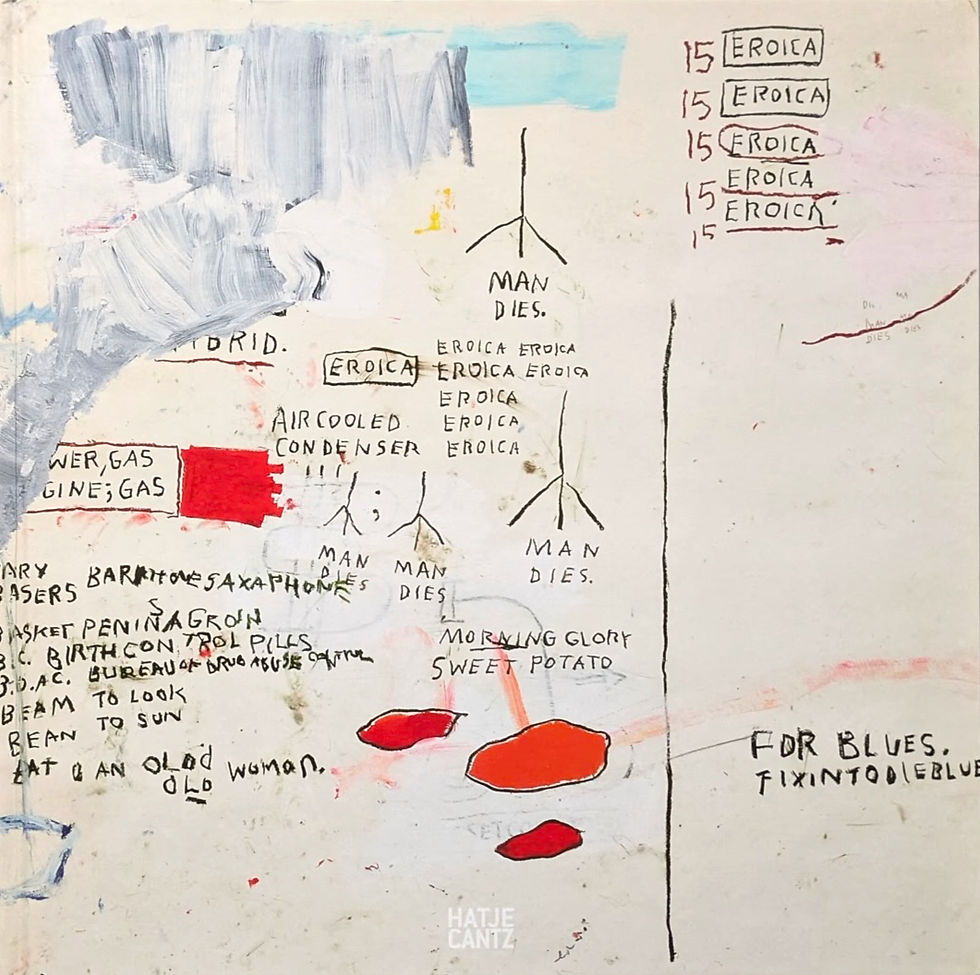 15 EROICA
15 EROICA
15 EROICA
15 EROICA
EROICA
15
MAN
DIES.
MAN
DIES
BRID.
EROICA
EROICA EROICA
EROICA EROICA
EROICA
EROICA
EROICA
AIRCOOLED
CONDENSER
WER, GAS
GINE; GAS
;
MAN
DIES
MAN
DIES
MAN
DIES.
ARY
BASERS
BASKET PENINAGRON
S
B.C. BIRTHCONTROL PILLS
B.D.A.C. BUREAU OF DRUG ABUSE CONTROL
BEAM TO LOOK
BEAN TO SUN
EAT AN
OLD WOMAN.
MORNING GLORY
SWEET POTATO
FOR BLUES.
FIXINTODIEBLUE
HATJE
CANTZ